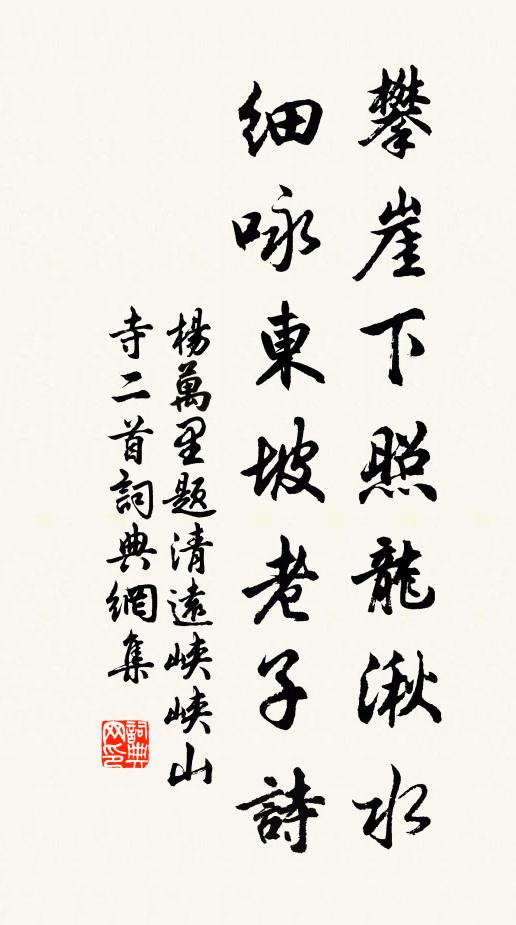 攀崖下照龍湫水
細咏東坡老子詩
楊萬里題清遠峽峽山
寺二首詞典網集
詞典
网印